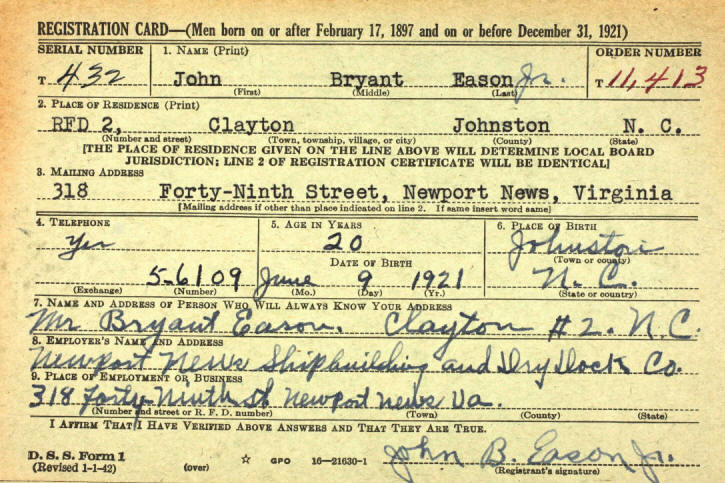 REGISTRATION CARD—(Men born on or after February 17, 1897 and on or before December 31, 1921)
SERIAL NUMBER 1. NAME (Print) ORDER NUMBER
T 432 John Bryant Eason Jr. T 11,413
(First) (Middle) (Last)
2. PLACE OF RESIDENCE (Print)
RFD 2, Clayton Johnston N. C.
(Number and street) (Town, township, village, or city) (County) (State)
[THE PLACE OF RESIDENCE GIVEN ON THE LINE ABOVE WILL DETERMINE LOCAL BOARD
JURISDICTION; LINE 2 OF REGISTRATION CERTIFICATE WILL BE IDENTICAL]
3. MAILING ADDRESS
318 Forty-Ninth Street, Newport News, Virginia
[Mailing address if other than place indicated on line 2. If same insert word same]
4. TELEPHONE 5. AGE IN YEARS 6. PLACE OF BIRTH
Yes 20 Johnston
DATE OF BIRTH (Town or county)
5-6109 June 9 1921 N. C.
(Exchange) (Number) (Mo.) (Day) (Yr.) (State or country)
7. NAME AND ADDRESS OF PERSON WHO WILL ALWAYS KNOW YOUR ADDRESS
Mr Bryant Eason. Clayton #2. N.C.
8. EMPLOYER'S NAME AND ADDRESS
Newport News Shipbuilding and Dry Dock Co.
9. PLACE OF EMPLOYMENT OR BUSINESS
318 Forty Ninth st Newport News Va.
(Number and street or R. F. D. number) (Town) (County) (State)
I AFFIRM THAT I HAVE VERIFIED ABOVE ANSWERS AND THAT THEY ARE TRUE.
D. S. S. Form 1
(Revised 1-1-42) (over) ☆ GPO 16—21630-1 John B. Eason Jr.
(Registrant's signature)